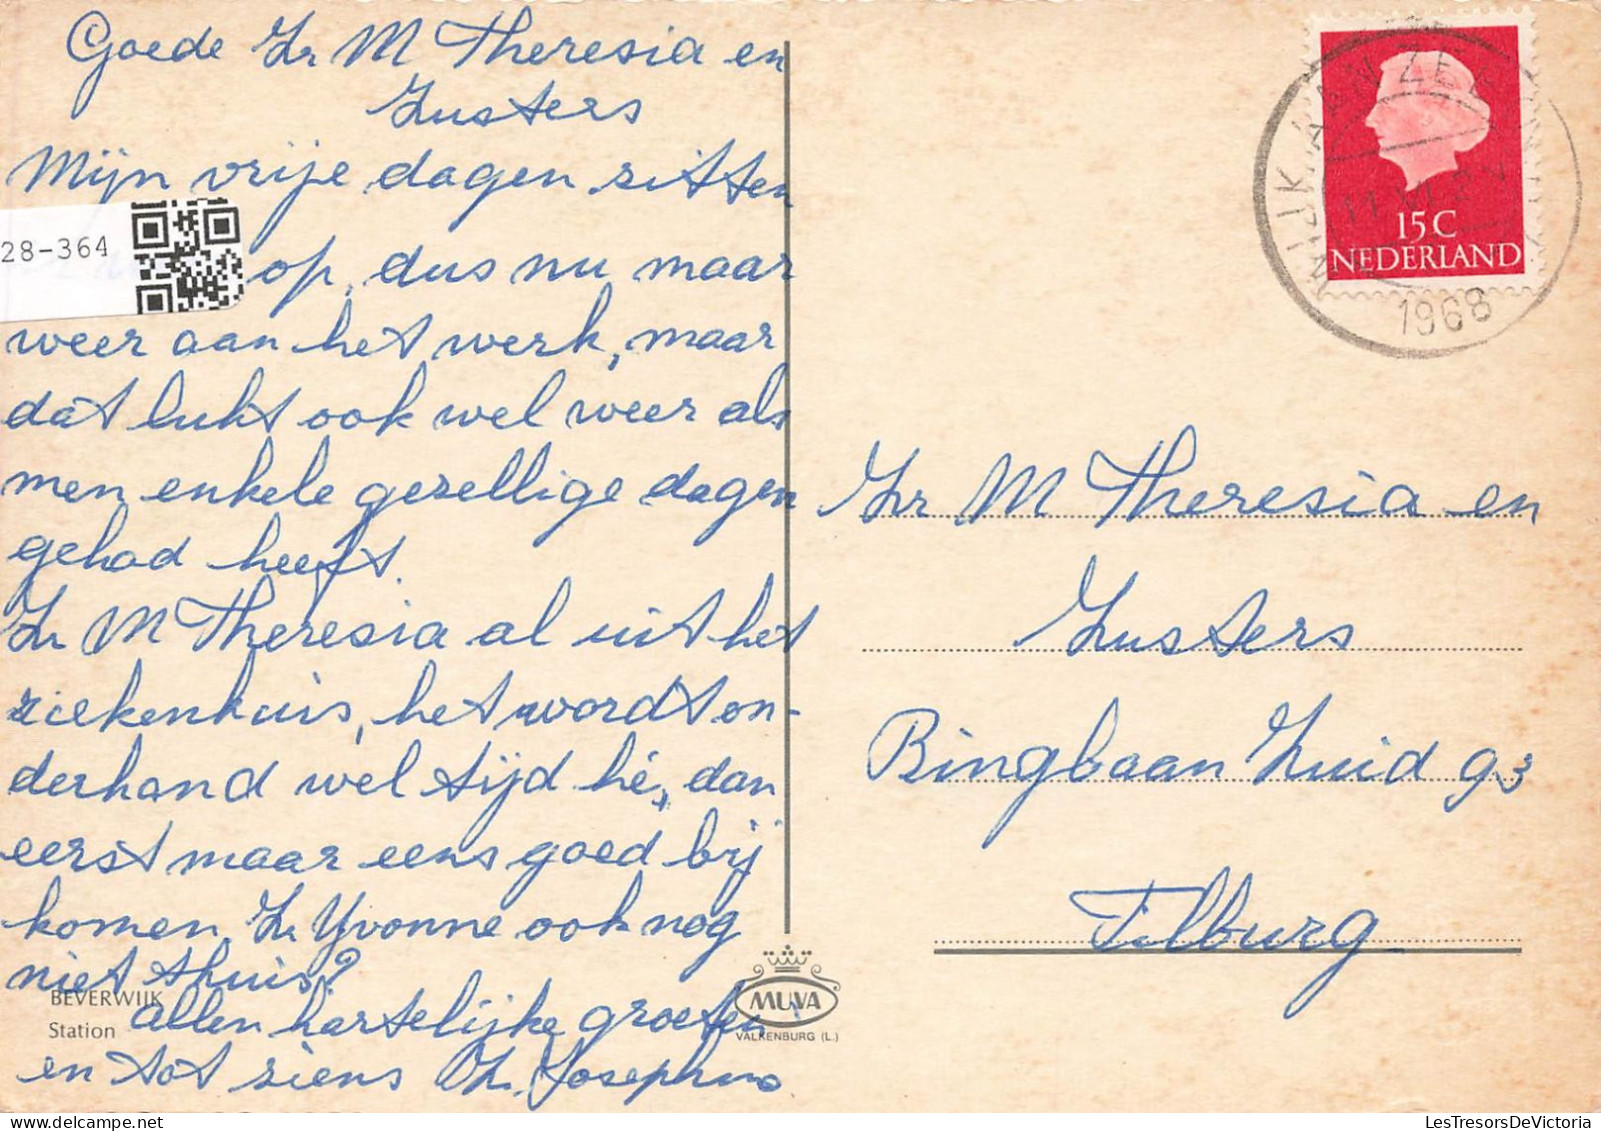 Goede Zr M Theresia en
Zusters
Mijn vrije dagen zitten
op, dus nu maar
weer aan het werk, maar
dat lukt ook wel weer als
men enkele gezellige dagen
gehad heeft.
Zr M Theresia al uit het
ziekenhuis, het wordt on-
derhand wel tijd hè, dan
eerst maar eens goed bij
komen. Zr Yvonne ook nog
niet thuis?
allen hartelijke groeten
en tot ziens Zr. Josephus
28-364
BEVERWIJK
Station
MUVA
VALKENBURG (L.)
WIJK AAN ZEE
11 VI
1968
15 C
NEDERLAND
Zr M Theresia en
Zusters
Ringbaan Zuid 93
Tilburg
LesTresorsDeVictoria